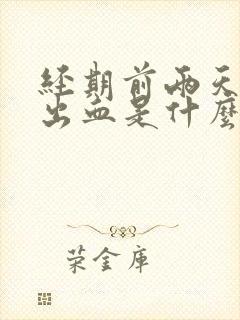 經期前兩天
出血是什麼
荣金庫